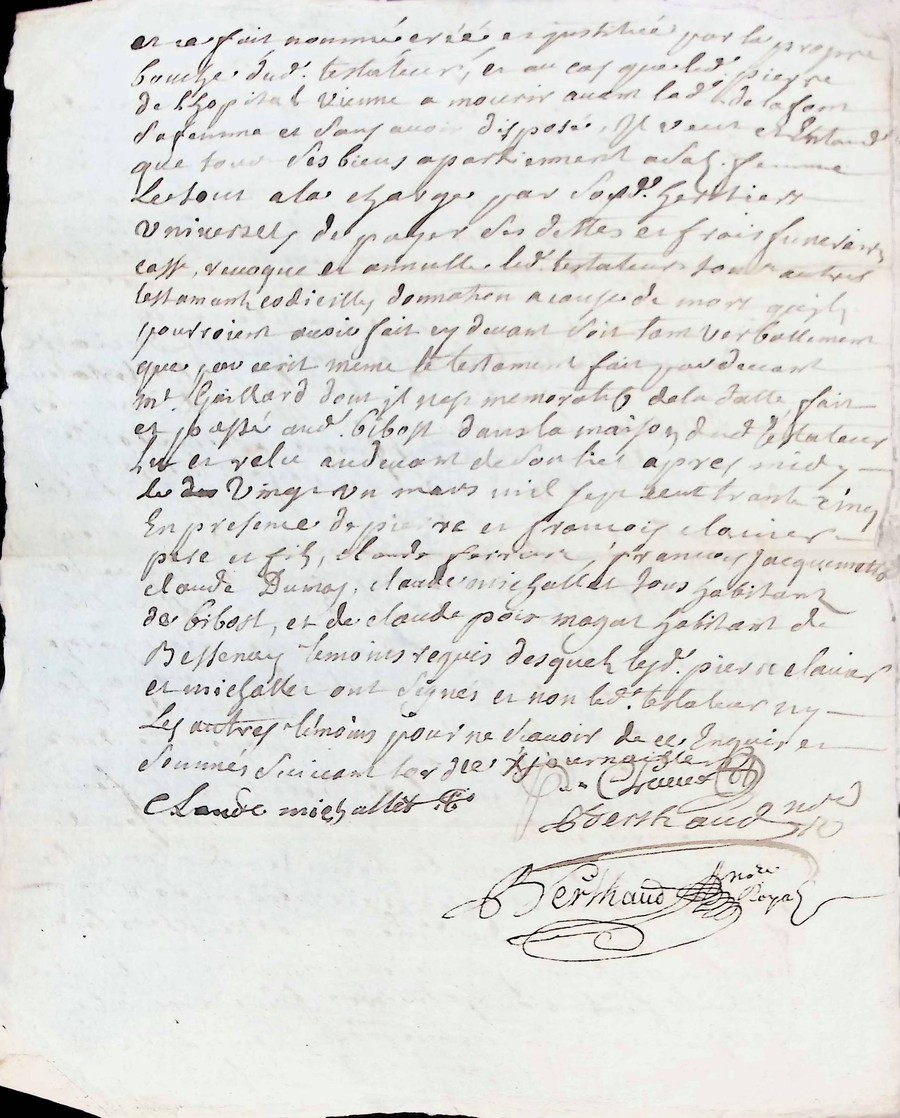 et ce fait nommé créé et institué par la propre
bouche dud. testateur, et au cas que led. pierre
de lhopital vienne a mourir avant lad. delafont
sa femme et sans avoir disposé, Il veut et Entand
que tous ses biens apartiennent a sad. femme
Le tout a la charge par sosd. heritiers
Universels de payer ses dettes et frais funeraires
casse, revoque et annulle led. testateur tous autres
testamant codicilles donnation a cause de mort qu'ils
pourroient avoir fait cy devant soit tant verballement
que par ecrit meme le testament fait par devant
me. Gaillard dont jl nest memoratif de la datte, fait
et passé aud. bibost dans la maison dud. testateur
lu et relu au devant de son lict apres midy
le vingt un mars mil sept cent trante cinq
En presence de pierre et francois clavier
pere et fils, claude ferrare, francois jacquemotto
claude Dumas, claude michallet tous habitant
de bibost, et de claude pois magat habitant de
Bessenay temoins requis desquels lesd. pierre clavier
et michallet ont signés et non led. testateur ny
Les autres temoins pour ne scavoir de ce Enquis et
sommés suivant lordce
Claude michallet
Berthaud nre
Berthaud nore Royal